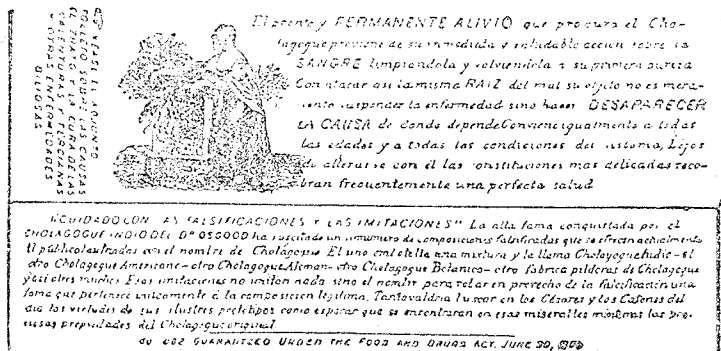 VEASE EL ADJUNTO
FOLLETO SOBRE LAS CAUSAS
TRATAMIENTO Y CURA DE LAS
CALENTURAS Y TERCIANAS
Y OTRAS ENFERMEDADES
BILIOSAS
El pronto y PERMANENTE ALIVIO que procura el Cho-
lagogue proviene de su inmediata y saludable accion sobre la
SANGRE limpiandola y volviendola a su primera pureza
Con atacar asi la misma RAIZ del mal su objeto no es mera-
mente suspender la enfermedad sino hacer DESAPARECER
LA CAUSA de donde depende Conviene igualmente a todas
las edades y a todas las condiciones del sistema, Lejos
de alterarse con el las constituciones mas delicadas reco-
bran frecuentemente una perfecta salud
"CUIDADO CON LAS FALSIFICACIONES Y LAS IMITACIONES" La alta fama conquistada por el
CHOLAGOGUE INDIO DEL Dr OSGOOD ha suscitado un sinnumero de composiciones falsificadas que se ofrecen actualmente
al publico con el nombre de Cholagogue El uno embotella una mixtura y la llama Cholagogue Indio - el
otro Cholagogue Americano - otro Cholagogue Aleman - otro Cholagogue Botanico - otro fabrica pildoras de Cholagogue
y asi otros muchos Esas imitaciones no imitan nada sino el nombre para robar en provecho de la falsificacion una
fama que pertenece unicamente a la composicion legitima. Tanto valdria buscar en los Césares y los Catones del
dia las virtudes de sus ilustres prototipos como esperar que se encontraran en esas miserables mixturas las pre-
ciosas propiedades del Cholagogue original
No 602 GUARANTEED UNDER THE FOOD AND DRUGS ACT. JUNE 30, 1906